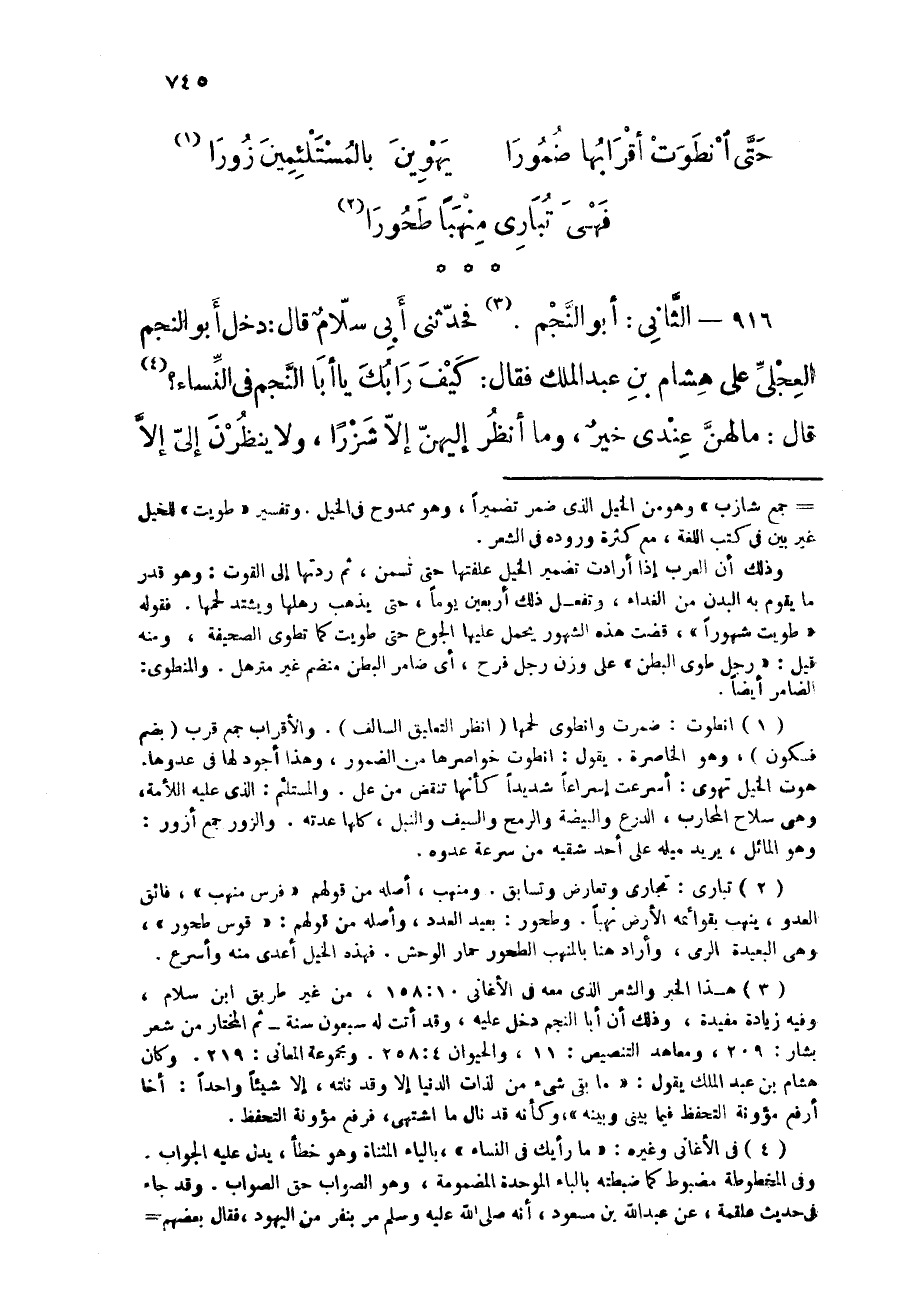 ٧٤٥
حَتَّى ٱنْطَوَتْ أَقْرَابُهَا ضُمُورَا يَهْوِينَ بِالمُسْتَلْئِمِينَ زُورَا (١)
فَهْىَ تُبَارِى مِنْهَبًا طَحُورَا (٢)
* * *
٩١٦ — الثَّانِي : أبو النَّجْم . (٣) فحدّثنى أَبِى سلّامٌ قال : دخل أَبو النجم
العِجْلِيِّ على هِشام بن عبد الملك فقال : كَيْفَ رَابُكَ يا أبَا النَّجم فى النِّساء ؟ (٤)
قال : مالهنَّ عِنْدى خيرٌ ، وما أنظُر إليهنّ إلاّ شَزْرًا ، ولا ينظُرْنَ إلىّ إلاَّ
= جمع شازب » وهو من الخيل الذى ضمر تضميراً ، وهو ممدوح فى الخيل . وتفسير « طويت » للخيل
غير بين فى كتب اللغة ، مع كثرة وروده فى الشعر .
وذلك أن العرب إذا أرادت تضمير الخيل علفتها حتى تسمن ، ثم ردتها إلى القوت : وهو قدر
ما يقوم به البدن من الغداء ، وتفعـل ذلك أربعين يوماً ، حتى يذهب رهلها ويشتد لحمها . فقوله
« طويت شهوراً » ، قضت هذه الشهور يحمل عليها الجوع حتى طويت كما تطوى الصحيفة ، ومنه
قيل : « رجل طوى البطن » على وزن رجل فرح ، أى ضامر البطن منضم غير مترهل . والمنطوى :
الضامر أيضاً .
( ١ ) انطوت : ضمرت وانطوى لحمها ( انظر التعليق السالف ) . والأقراب جمع قرب ( بضم
فسكون ) ، وهو الخاصرة . يقول : انطوت خواصرها من الضمور ، وهذا أجود لها فى عدوها .
هوت الخيل تهوى : أسرعت إسراعاً شديداً كأنها تنقض من عل . والمستلئم : الذى عليه اللأمة ،
وهى سلاح المحارب ، الدرع والبيضة والرمح والسيف والنبل ، كلها عدته . والزور جمع أزور :
وهو المائل ، يريد ميله على أحد شقيه من سرعة عدوه .
( ٢ ) تبارى : تجارى وتعارض وتسابق . ومنهب ، أصله من قولهم « فرس منهب » ، فائق
العدو ، ينهب بقوائمه الأرض نهباً . وطحور : بعيد العدد ، وأصله من قولهم : « قوس طحور » ،
وهى البعيدة الرمى ، وأراد هنا بالمنهب الطحور حمار الوحش . فهذه الخيل أعدى منه وأسرع .
( ٣ ) هـذا الخبر والشعر الذى معه فى الأغانى ١٠ : ١٥٨ ، من غير طريق ابن سلام ،
وفيه زيادة مفيدة ، وذلك أن أبا النجم دخل عليه ، وقد أتت له سبعون سنة ــ ثم المختار من شعر
بشار : ٢٠٩ ، ومعاهد التنصيص : ١١ ، والحيوان ٤ : ٢٥٨ . ومجموعة المعانى : ٢١٩ . وكان
هشام بن عبد الملك يقول : « ما بقى شىء من لذات الدنيا إلا وقد نلته ، إلا شيئاً واحداً : أخا
أرفع مؤونة التحفظ فيما بينى وبينه » ، وكأنه قد نال ما اشتهى ، فرفع مؤونة التحفظ .
( ٤ ) فى الأغانى وغيره : « ما رأيك فى النساء » ، بالياء المثناة وهو خطأ ، يدل عليه الجواب .
وفى المخطوطة مضبوط كما ضبطته بالباء الموحدة المضمومة ، وهو الصواب حق الصواب . وقد جاء
فى حديث علقمة ، عن عبدالله بن مسعود ، أنه صلى الله عليه وسلم مر بنفر من اليهود ، فقال بعضهم =